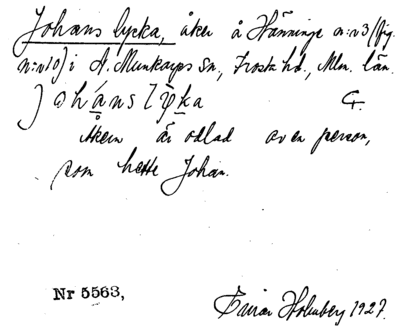 Johans lycka, åker å Hänninge n:r 3 (fig.
n:r 10) i N. Munkarps sn, Frosta hd., Mlm. län.
Johans lyka
G.
Åkern är odlad av en person,
som hette Johan.
Nr 5563,
Einar Holmberg 1927.